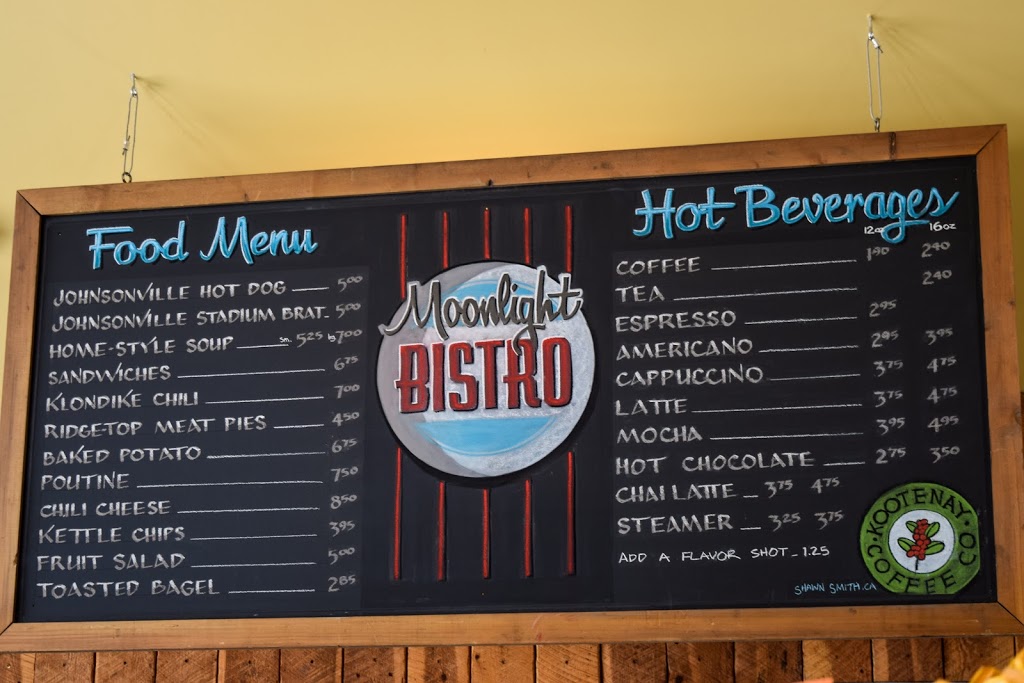 Food Menu
JOHNSONVILLE HOT DOG 5.00
JOHNSONVILLE STADIUM BRAT 5.00
HOME-STYLE SOUP sm. 5.25 lg 7.00
SANDWICHES 6.75
KLONDIKE CHILI 7.00
RIDGE-TOP MEAT PIES 4.50
BAKED POTATO 6.75
POUTINE 7.50
CHILI CHEESE 8.50
KETTLE CHIPS 3.95
FRUIT SALAD 5.00
TOASTED BAGEL 2.85
Moonlight
BISTRO
Hot Beverages
12oz 16oz
COFFEE 1.90 2.40
TEA 2.40
ESPRESSO 2.95
AMERICANO 2.95 3.95
CAPPUCCINO 3.75 4.75
LATTE 3.75 4.75
MOCHA 3.95 4.95
HOT CHOCOLATE 2.75 3.50
CHAI LATTE 3.75 4.75
STEAMER 3.25 3.75
ADD A FLAVOR SHOT - 1.25
SHAWN SMITH.CA
KOOTENAY
COFFEE CO.